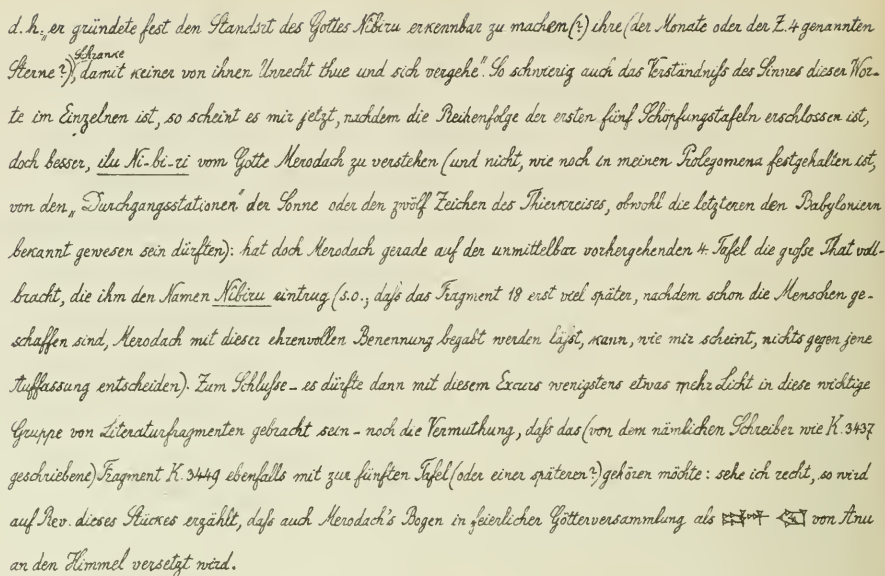 d. h. „er gründete fest den Standort des Gottes Nibiru erkennbar zu machen (?) ihre (der Monate oder der Z. 4 genannten
Schranke
Sterne?), damit keiner von ihnen Unrecht thue und sich vergehe“. So schwierig auch das Verständniſs des Sinnes dieser Wor-
te im Einzelnen ist, so scheint es mir jetzt, nachdem die Reihenfolge der ersten fünf Schöpfungstafeln erschlossen ist,
doch besser, ilu Ni-bi-ri vom Gotte Merodach zu verstehen (und nicht, wie noch in meinen Prolegomena festgehalten ist,
von den „Durchgangsstationen“ der Sonne oder den zwölf Zeichen des Thierkreises, obwohl die letzteren den Babyloniern
bekannt gewesen sein dürften): hat doch Merodach gerade auf der unmittelbar vorhergehenden 4. Tafel die große That voll-
bracht, die ihm den Namen Nibiru eintrug (s.o.; daſs das Fragment 18 erst viel später, nachdem schon die Menschen ge-
schaffen sind, Merodach mit dieser ehrenvollen Benennung begabt werden läſst, kann, wie mir scheint, nichts gegen jene
Auffassung entscheiden). Zum Schluſse – es dürfte dann mit diesem Excurs wenigstens etwas mehr Licht in diese wichtige
Gruppe von Literaturfragmenten gebracht sein – noch die Vermuthung, daſs das (von dem nämlichen Schreiber wie K. 3437
geschriebene) Fragment K. 3449 ebenfalls mit zur fünften Tafel (oder einer späteren?) gehören möchte: sehe ich recht, so wird
auf Rev. dieses Stückes erzählt, daſs auch Merodach's Bogen in feierlicher Götterversammlung als von Anu
an den Himmel versetzt wird.